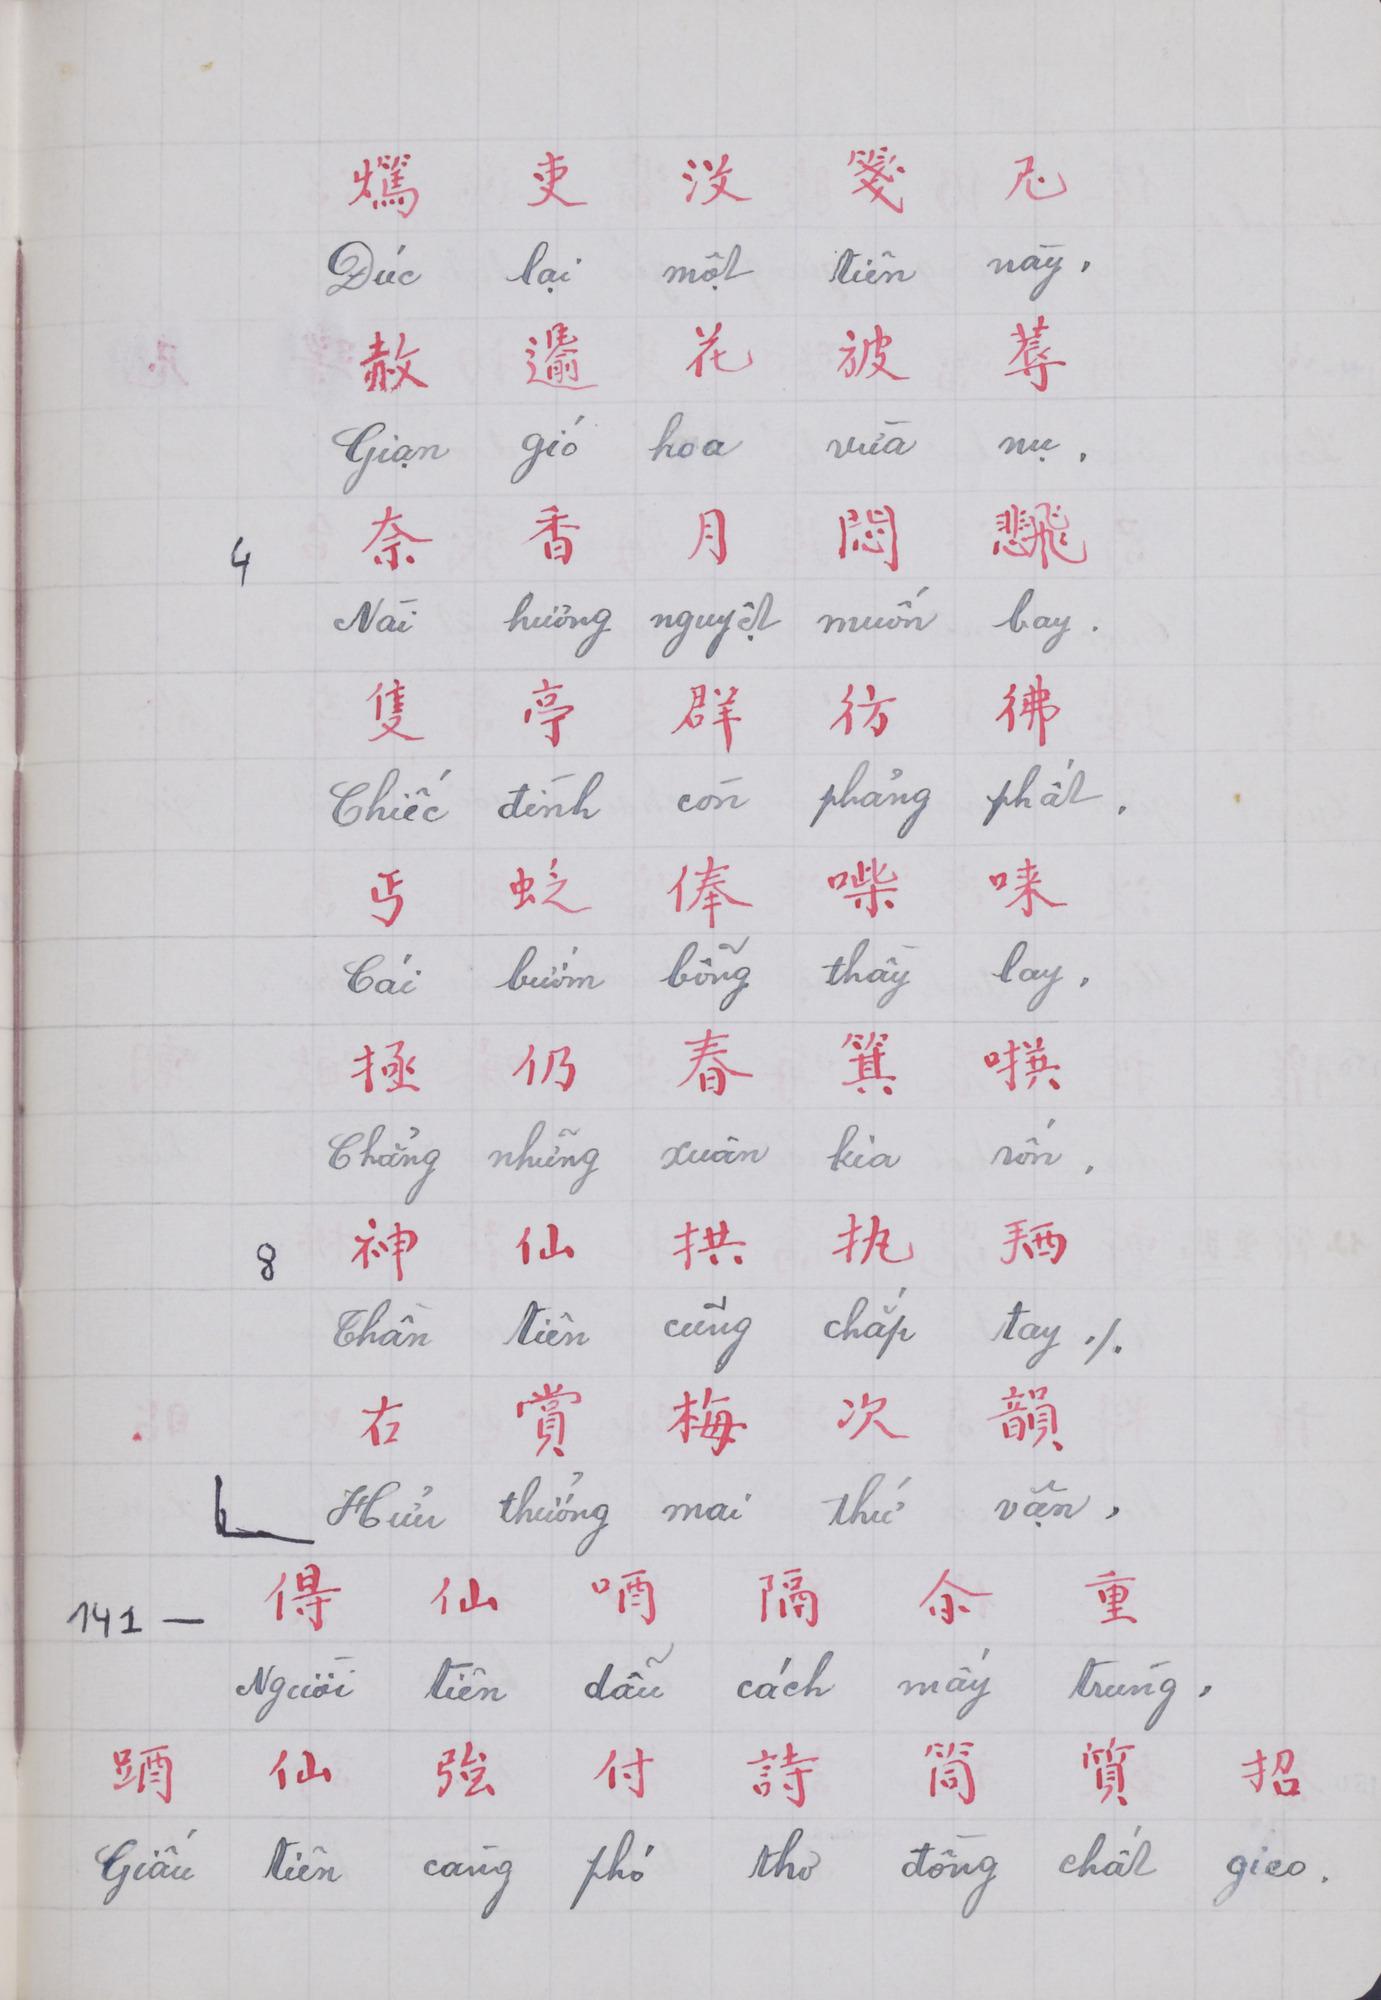 燆 吏 沒 箋 尼
Đúc lại một tiên này,
赦 𨗺 花 披 蓐
Giạn gió hoa vừa nụ,
4 奈 香 月 悶 𢒎
Nài hương nguyệt muốn bay.
隻 亭 群 彷 彿
Chiếc đình còn phảng phất,
丐 𧊉 俸 喍 唻
Cái bướm bỗng thầy lay,
拯 仍 春 箕
Chẳng những xuân kia rốn,
8 神 仙 拱 执 拪
Thần tiên cũng chắp tay ./.
右 賞 梅 次 韻
Hữu thưởng mai thứ vận,
141 — 得 仙 唒 隔 尒 重
Người tiên dẫu cách mấy trùng,
𨁪 仙 強 付 詩 筒 質 招
Giấu tiên càng phó thơ đồng chất gieo.